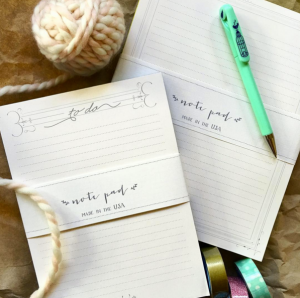 to do
note pad
MADE IN THE USA
note pad
MADE IN THE USA